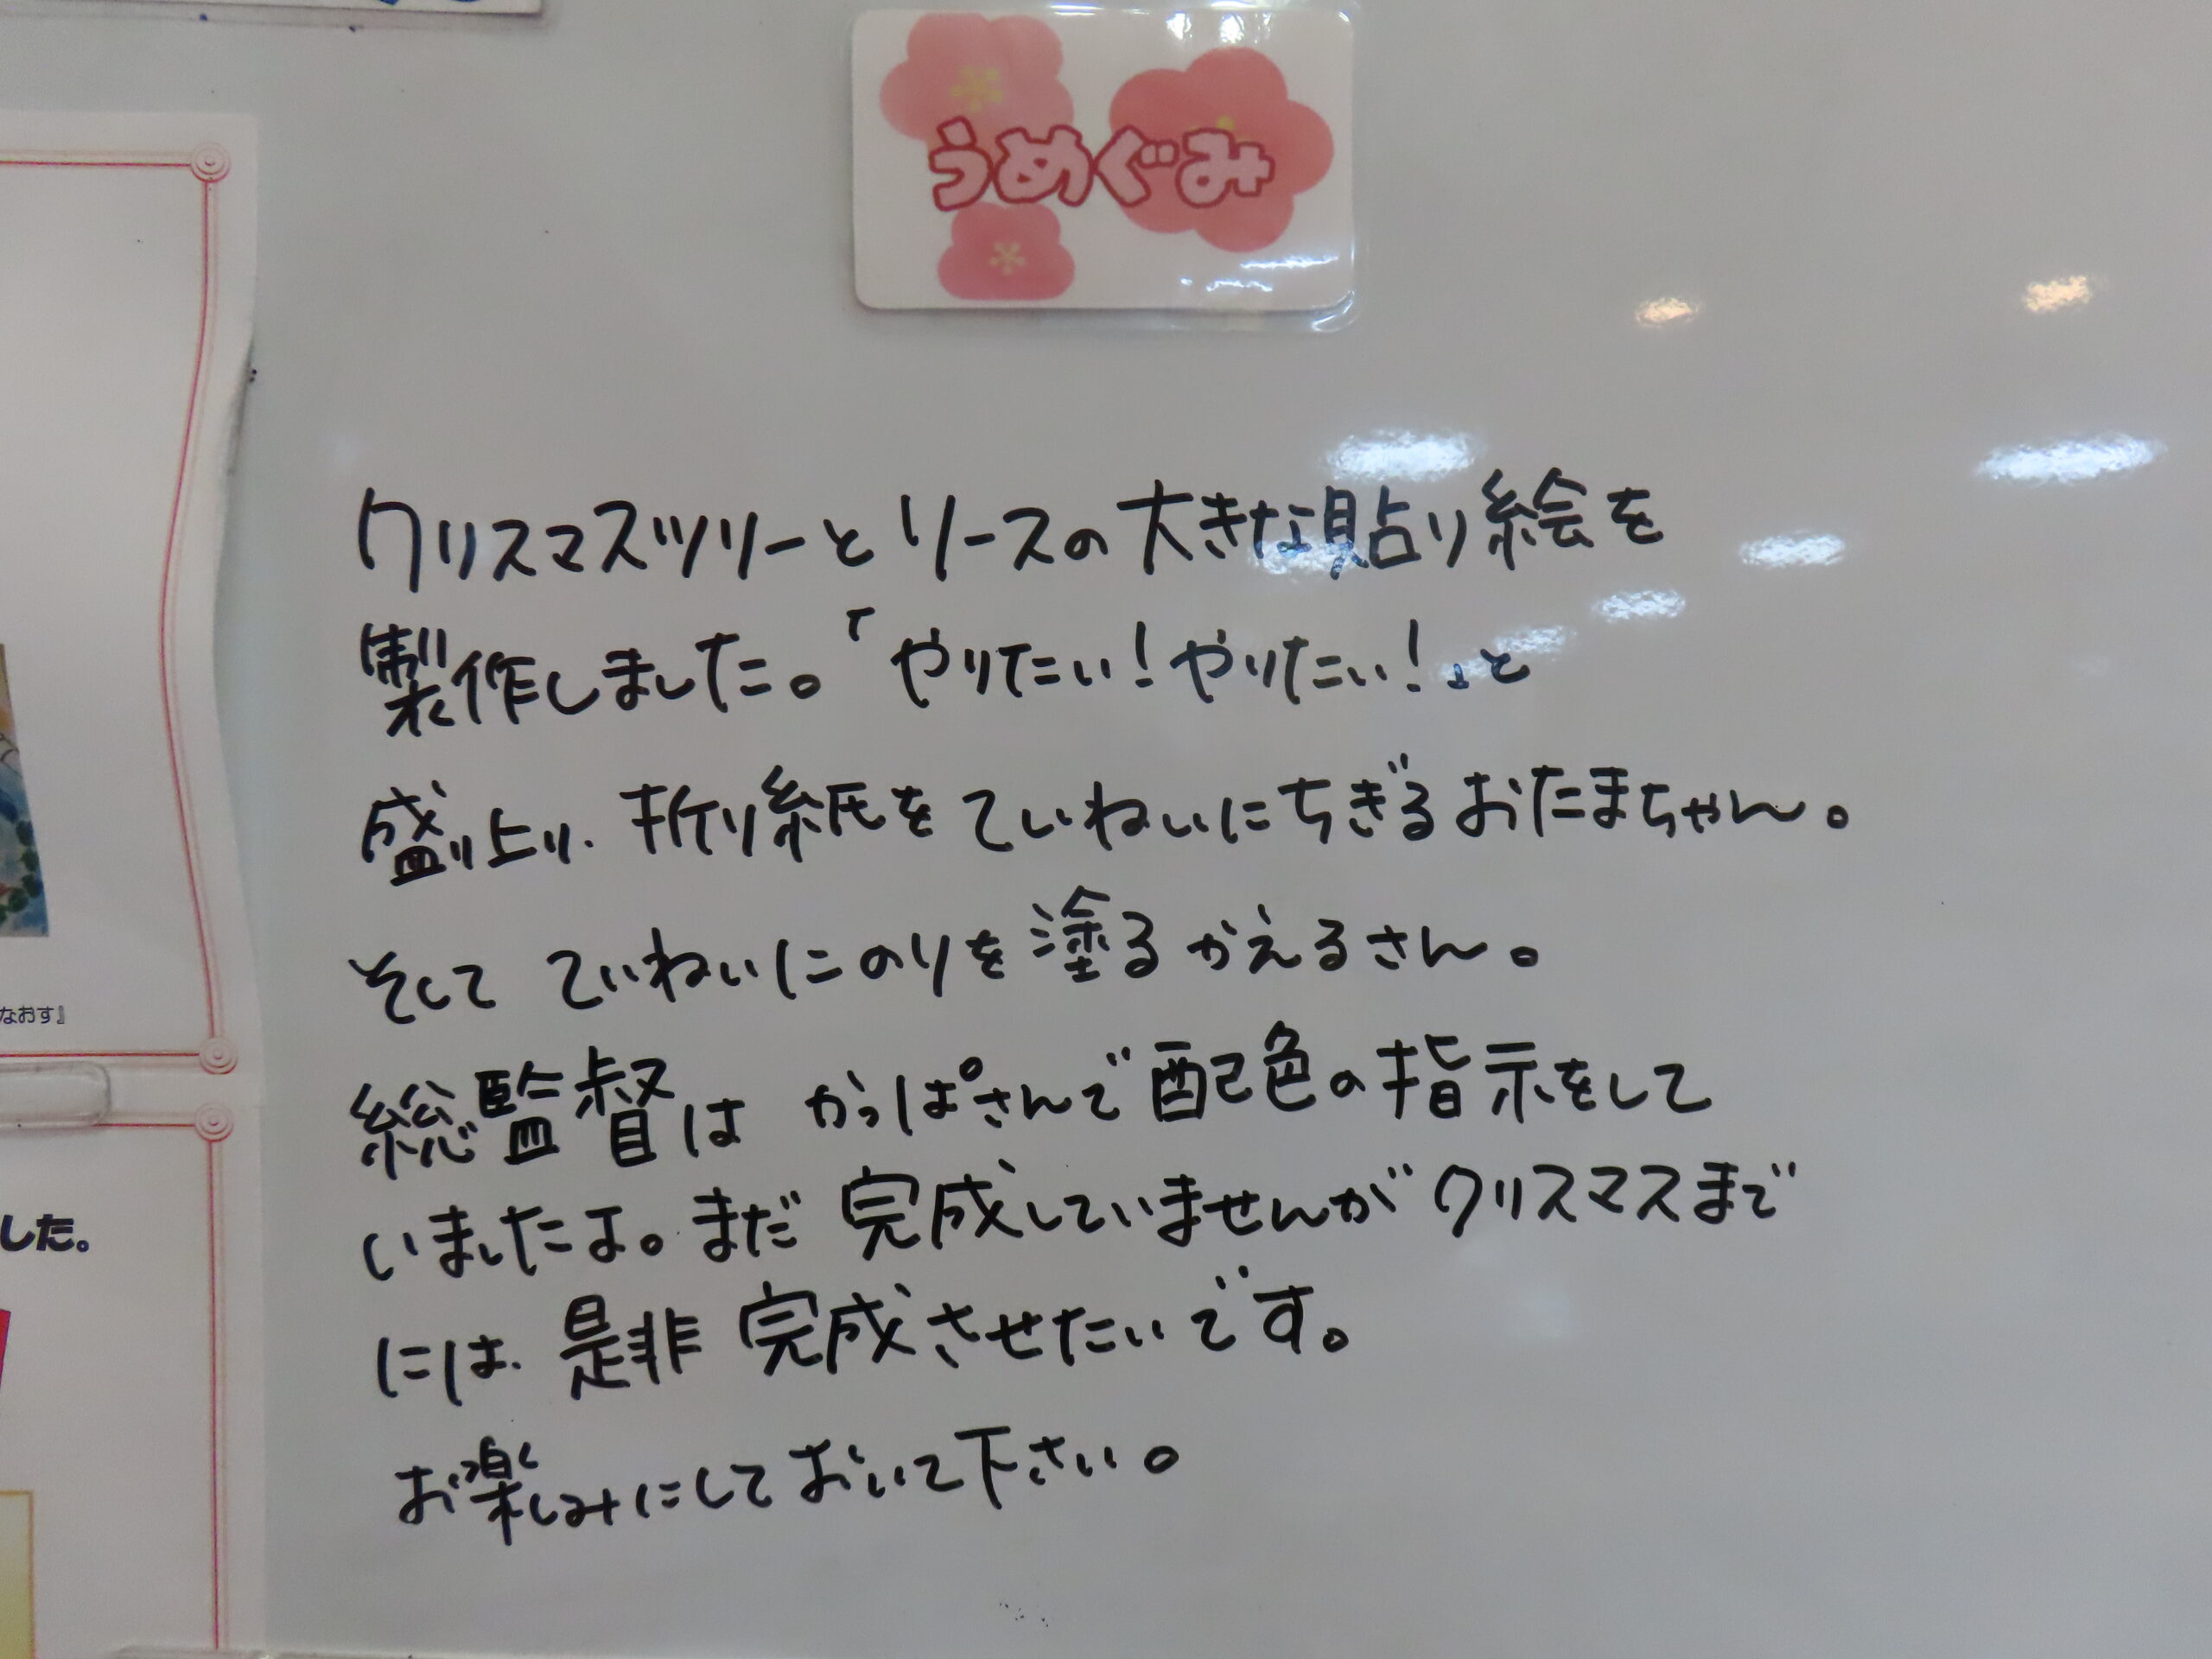 うめぐみ
クリスマスツリーとリースの大きな貼り絵を
製作しました。「やりたい!やりたい!」と
盛り上り、折り紙をていねいにちぎるおたまちゃん。
そして ていねいにのりを塗るかえるさん。
総監督は かっぱさんで配色の指示をして
いましたよ。まだ 完成していませんがクリスマスまで
には、是非 完成させたいです。
お楽しみにしておいて下さい。
なおす』
した。